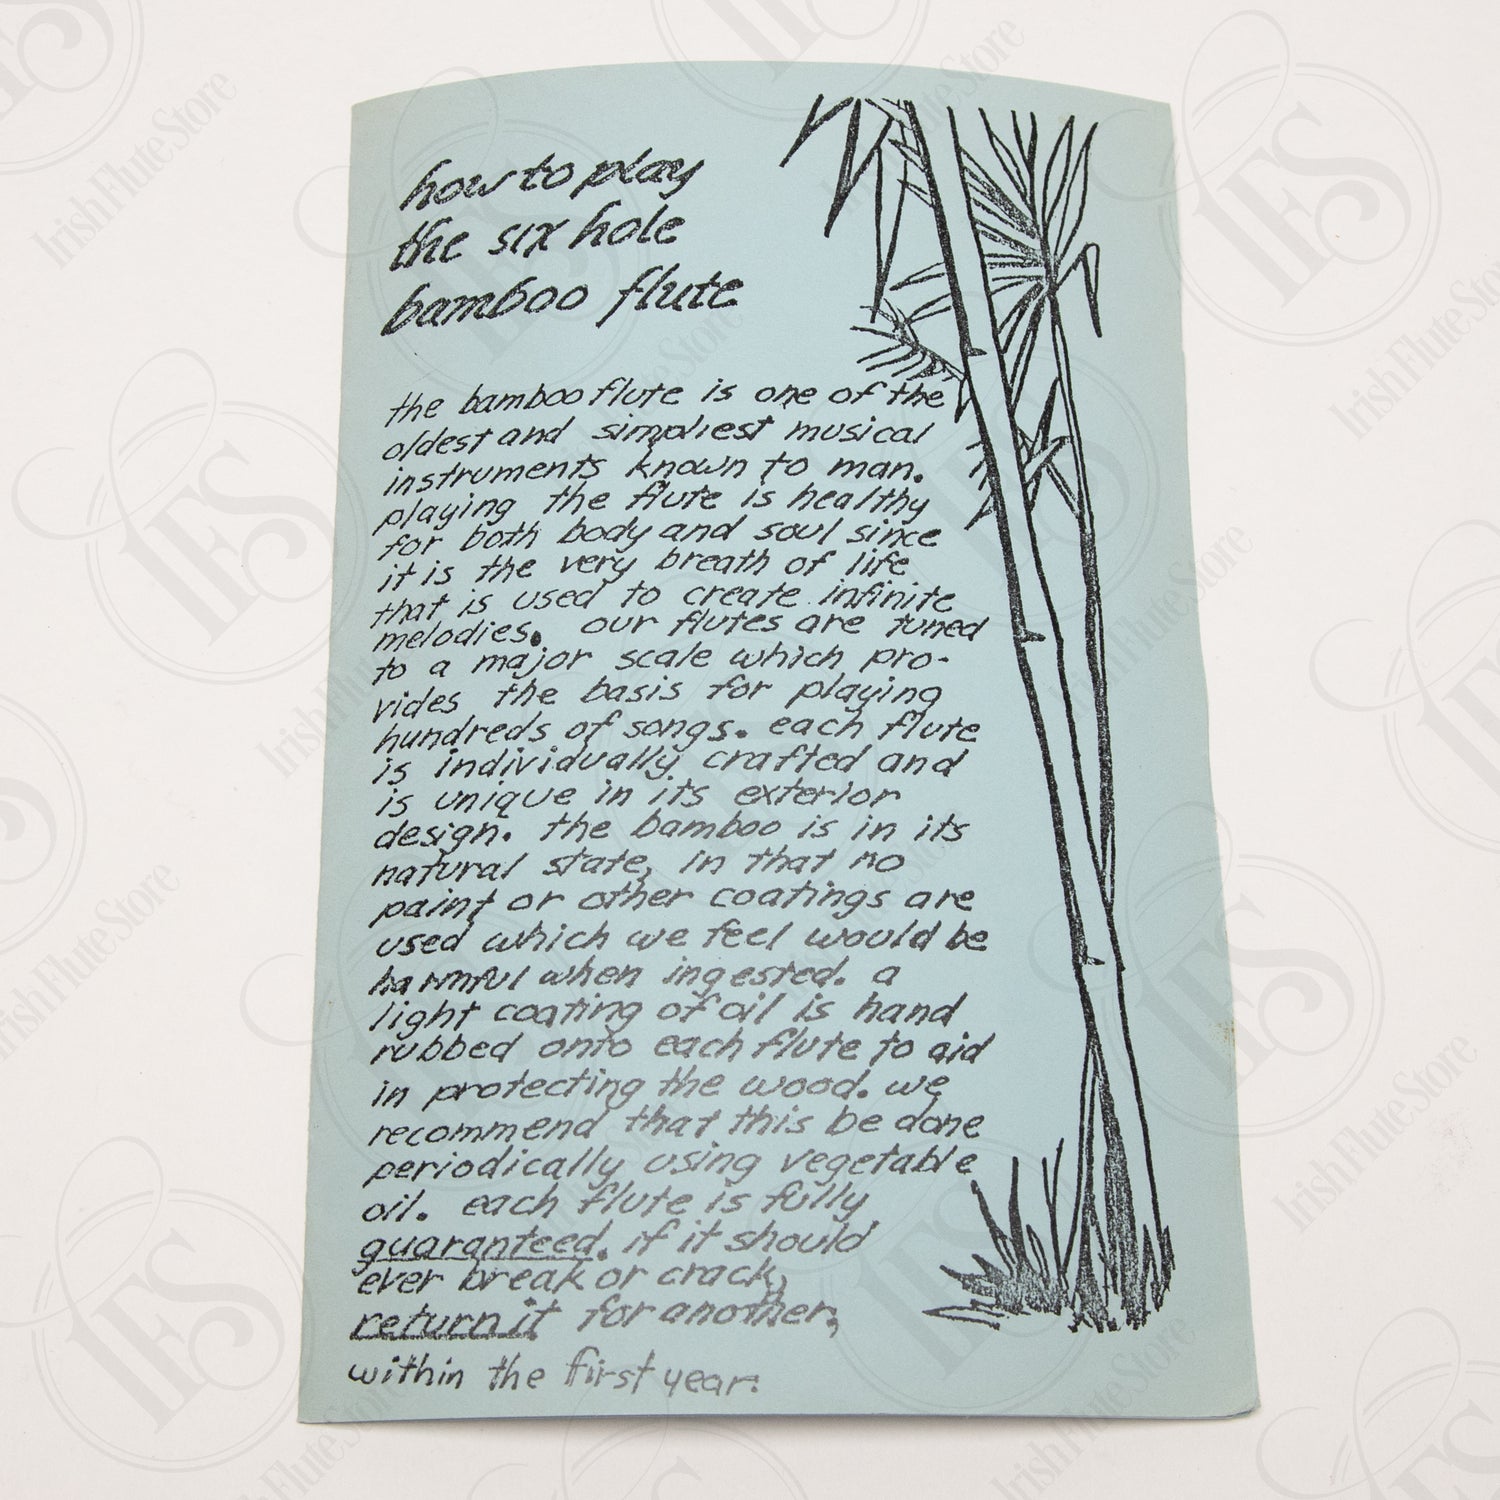 how to play
the six hole
bamboo flute
the bamboo flute is one of the
oldest and simpliest musical
instruments known to man.
playing the flute is healthy
for both body and soul since
it is the very breath of life
that is used to create infinite
melodies. our flutes are tuned
to a major scale which pro-
vides the basis for playing
hundreds of songs. each flute
is individually crafted and
is unique in its exterior
design. the bamboo is in its
natural state, in that no
paint or other coatings are
used which we feel would be
harmful when ingested. a
light coating of oil is hand
rubbed onto each flute to aid
in protecting the wood. we
recommend that this be done
periodically using vegetable
oil. each flute is fully
guaranteed. if it should
ever break or crack,
return it for another,
within the first year.
IFS
IrishFluteStore